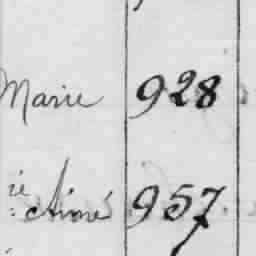 Marie 928
ié
Aimé 957